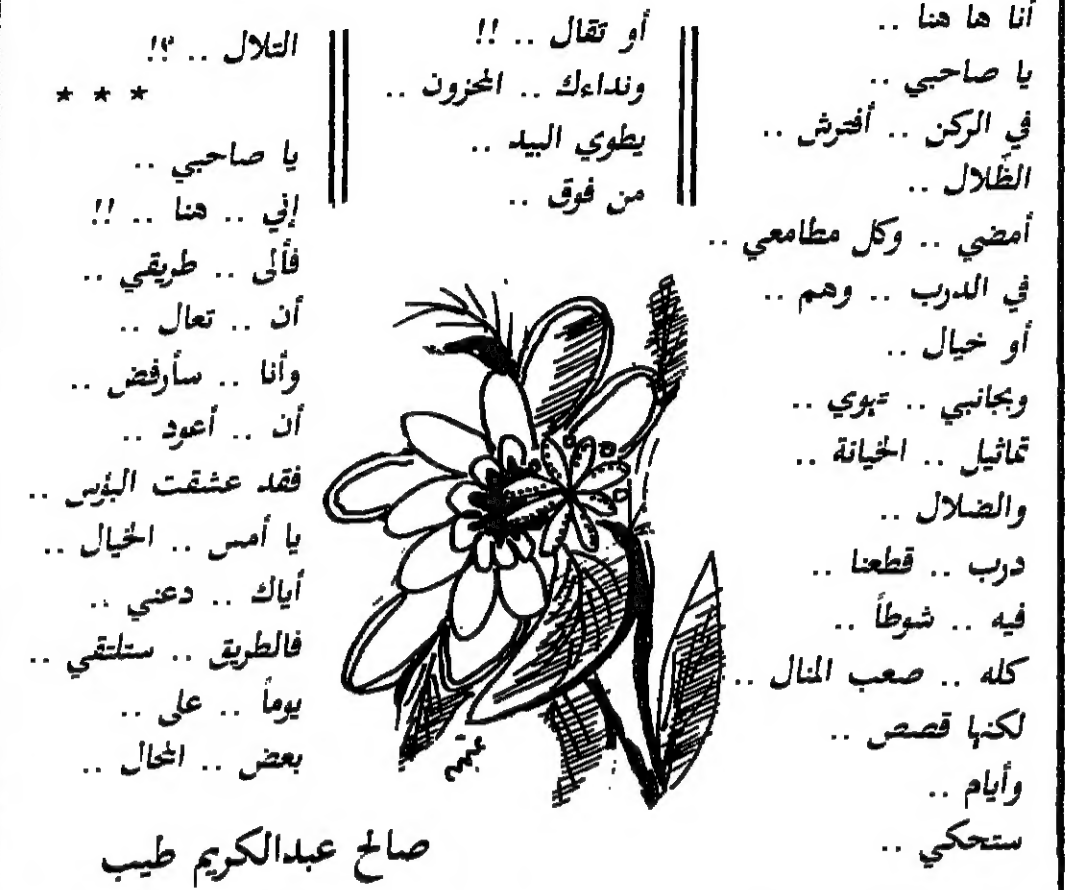 أنا ها هنا ..
يا صاحبي ..
في الركن .. أفترش ..
الظِّلال ..
أمضي .. وكل مطامعي ..
في الدرب .. وهم ..
أو خيال ..
وبجانبي .. تهوي ..
تماثيل .. الخيانة ..
والضلال ..
درب .. قطعنا ..
فيه .. شوطاً ..
كله .. صعب المنال ..
لكنها قصص ..
وأيام ..
ستحكي ..
أو تقال .. !!
ونداءك .. المحزون ..
يطوي البيد ..
من فوق ..
التلال .. ؟!
* * *
يا صاحبي ..
إني .. هنا .. !!
فألى .. طريقي ..
أن .. تعال ..
وأنا .. سأرفض ..
أن .. أعود ..
فقد عشقت البؤس ..
يا أمس .. الخيال ..
أياك .. دعني ..
فالطريق .. ستلتقي ..
يوماً .. على ..
بعض .. المحال ..
صالح عبدالكريم طيب